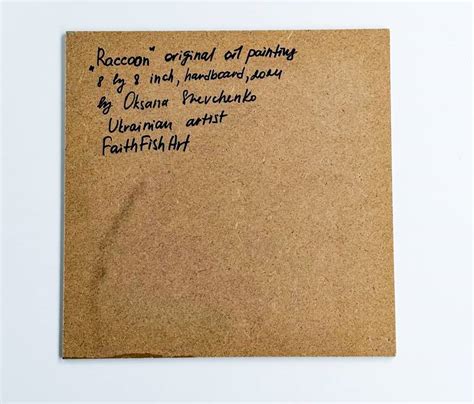 "Raccoon" original art painting
8 by 8 inch, hardboard, 2024
by Oksana Shevchenko
Ukrainian artist
FaithFishArt